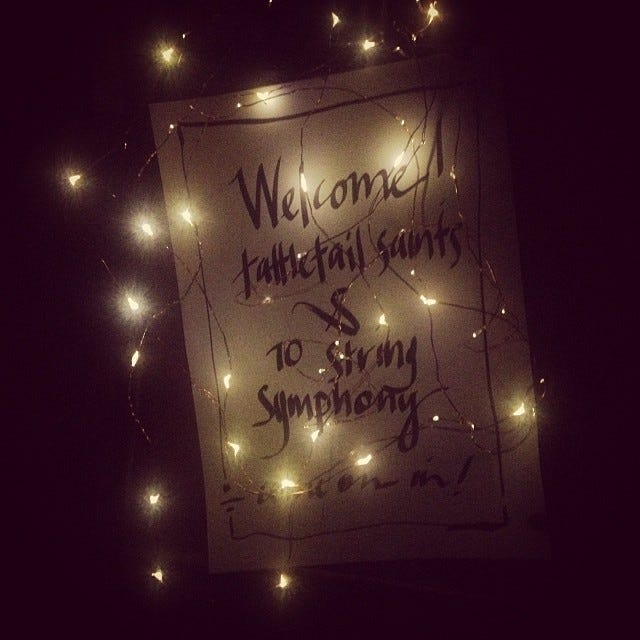 Welcome!
tattletail saints
&
10 string
symphony
on in!